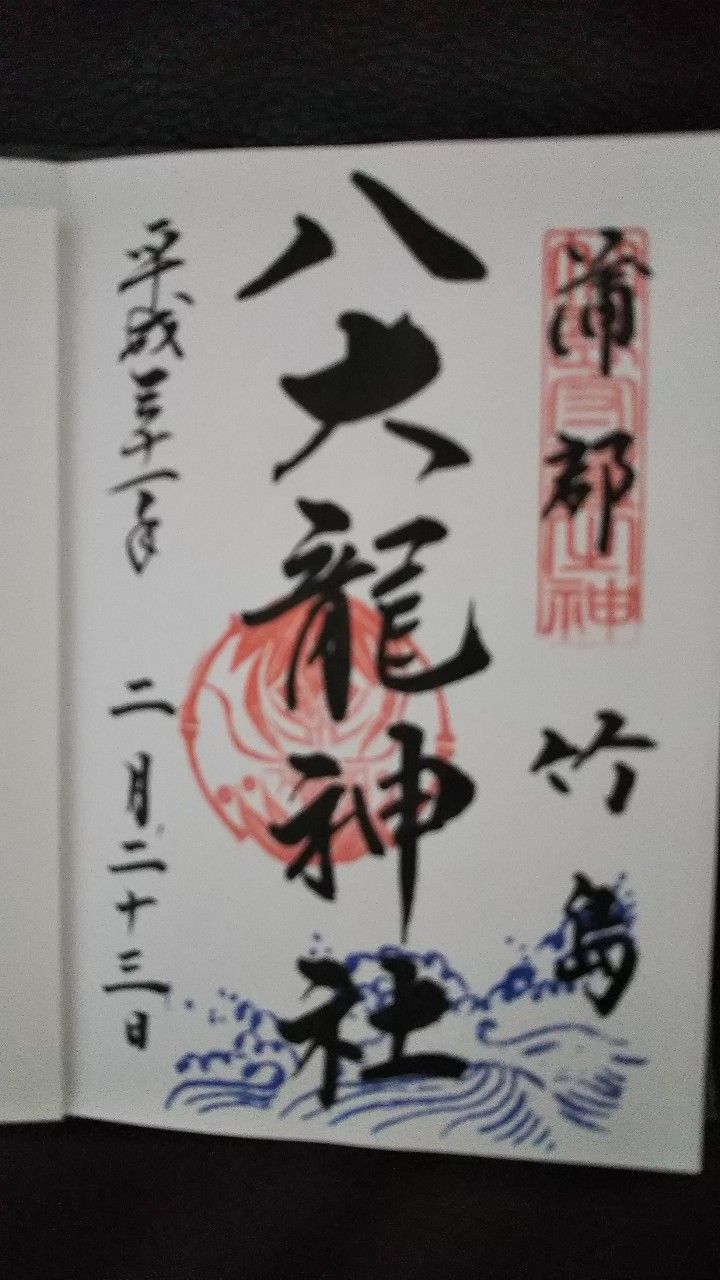 蒲郡 竹島
八大龍神社
平成三十一年 二月二十三日